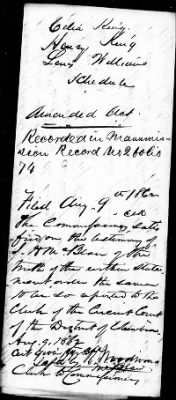 Celia King.
Henry King
Levi Williams
Schedule
Amended Act.
Recorded in Manumis-
sion Record No 2 folio
74
Filed Aug. 9th 1862
The Commissioners satis
fied on the testimony of
of the
truth of the within state
ment order the same
to be so reported to the
Clerk of the Circuit Court
of the District of Columbia,
Aug. 9. 1862
Clerk to Commissioners